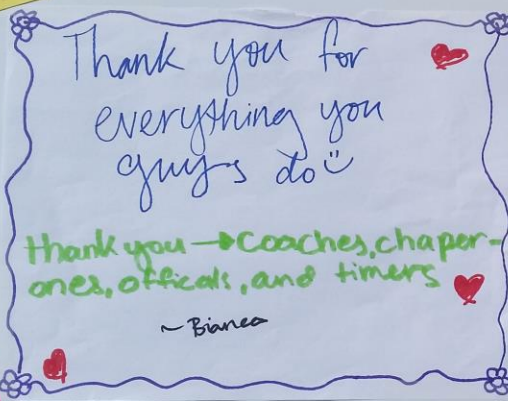 Thank you for
everything you
guys do
thank you → Coaches, chaper-
ones, officals, and timers
~ Bianca